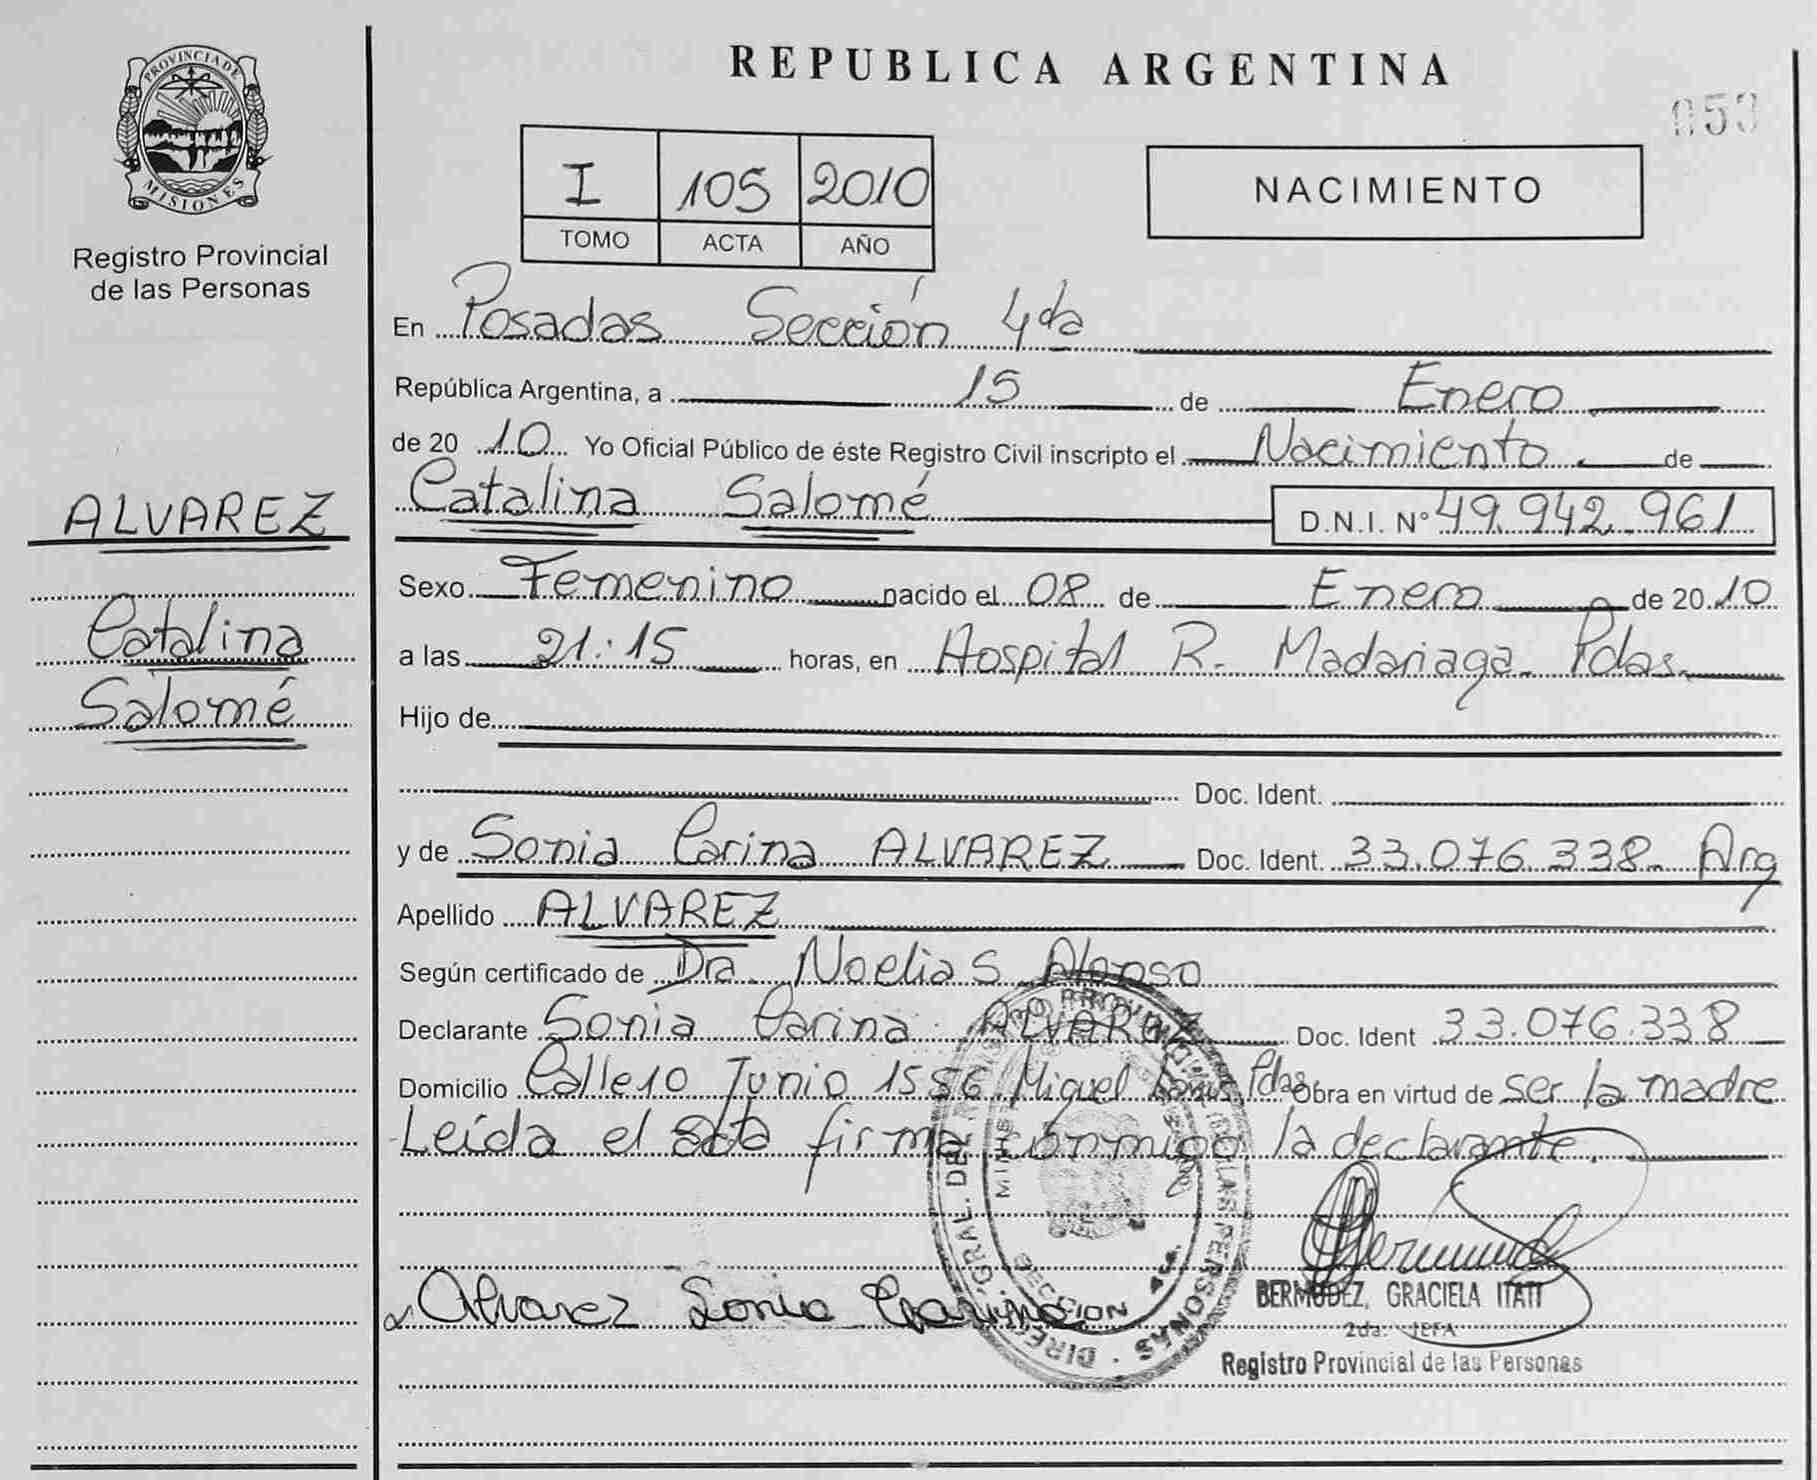 REPUBLICA ARGENTINA
053
PROVINCIA DE
MISIONES
Registro Provincial
de las Personas
I 105 2010
TOMO ACTA AÑO
NACIMIENTO
En Posadas Sección 4da
República Argentina, a 15 de Enero
de 20 10 Yo Oficial Público de éste Registro Civil inscripto el Nacimiento de
ALVAREZ
Catalina
Salomé
Catalina Salomé D.N.I. Nº 49.942.961
Sexo Femenino nacido el 08 de Enero de 20 10
a las 21:15 horas, en Hospital R. Madariaga Pdas.
Hijo de
Doc. Ident.
y de Sonia Carina ALVAREZ Doc. Ident. 33.076.338 Arg
Apellido ALVAREZ
Según certificado de Dra. Noelia S. Alonso
Declarante Sonia Carina ALVAREZ Doc. Ident 33.076.338
Domicilio Calle 10 Junio 1556 Miguel Lanus Pdas. Obra en virtud de ser la madre
Leída el acta firma conmigo la declarante.
Alvarez Sonia Carina
BERMUDEZ, GRACIELA ITATI
2da. JEFA
Registro Provincial de las Personas
SECCION 4ta.